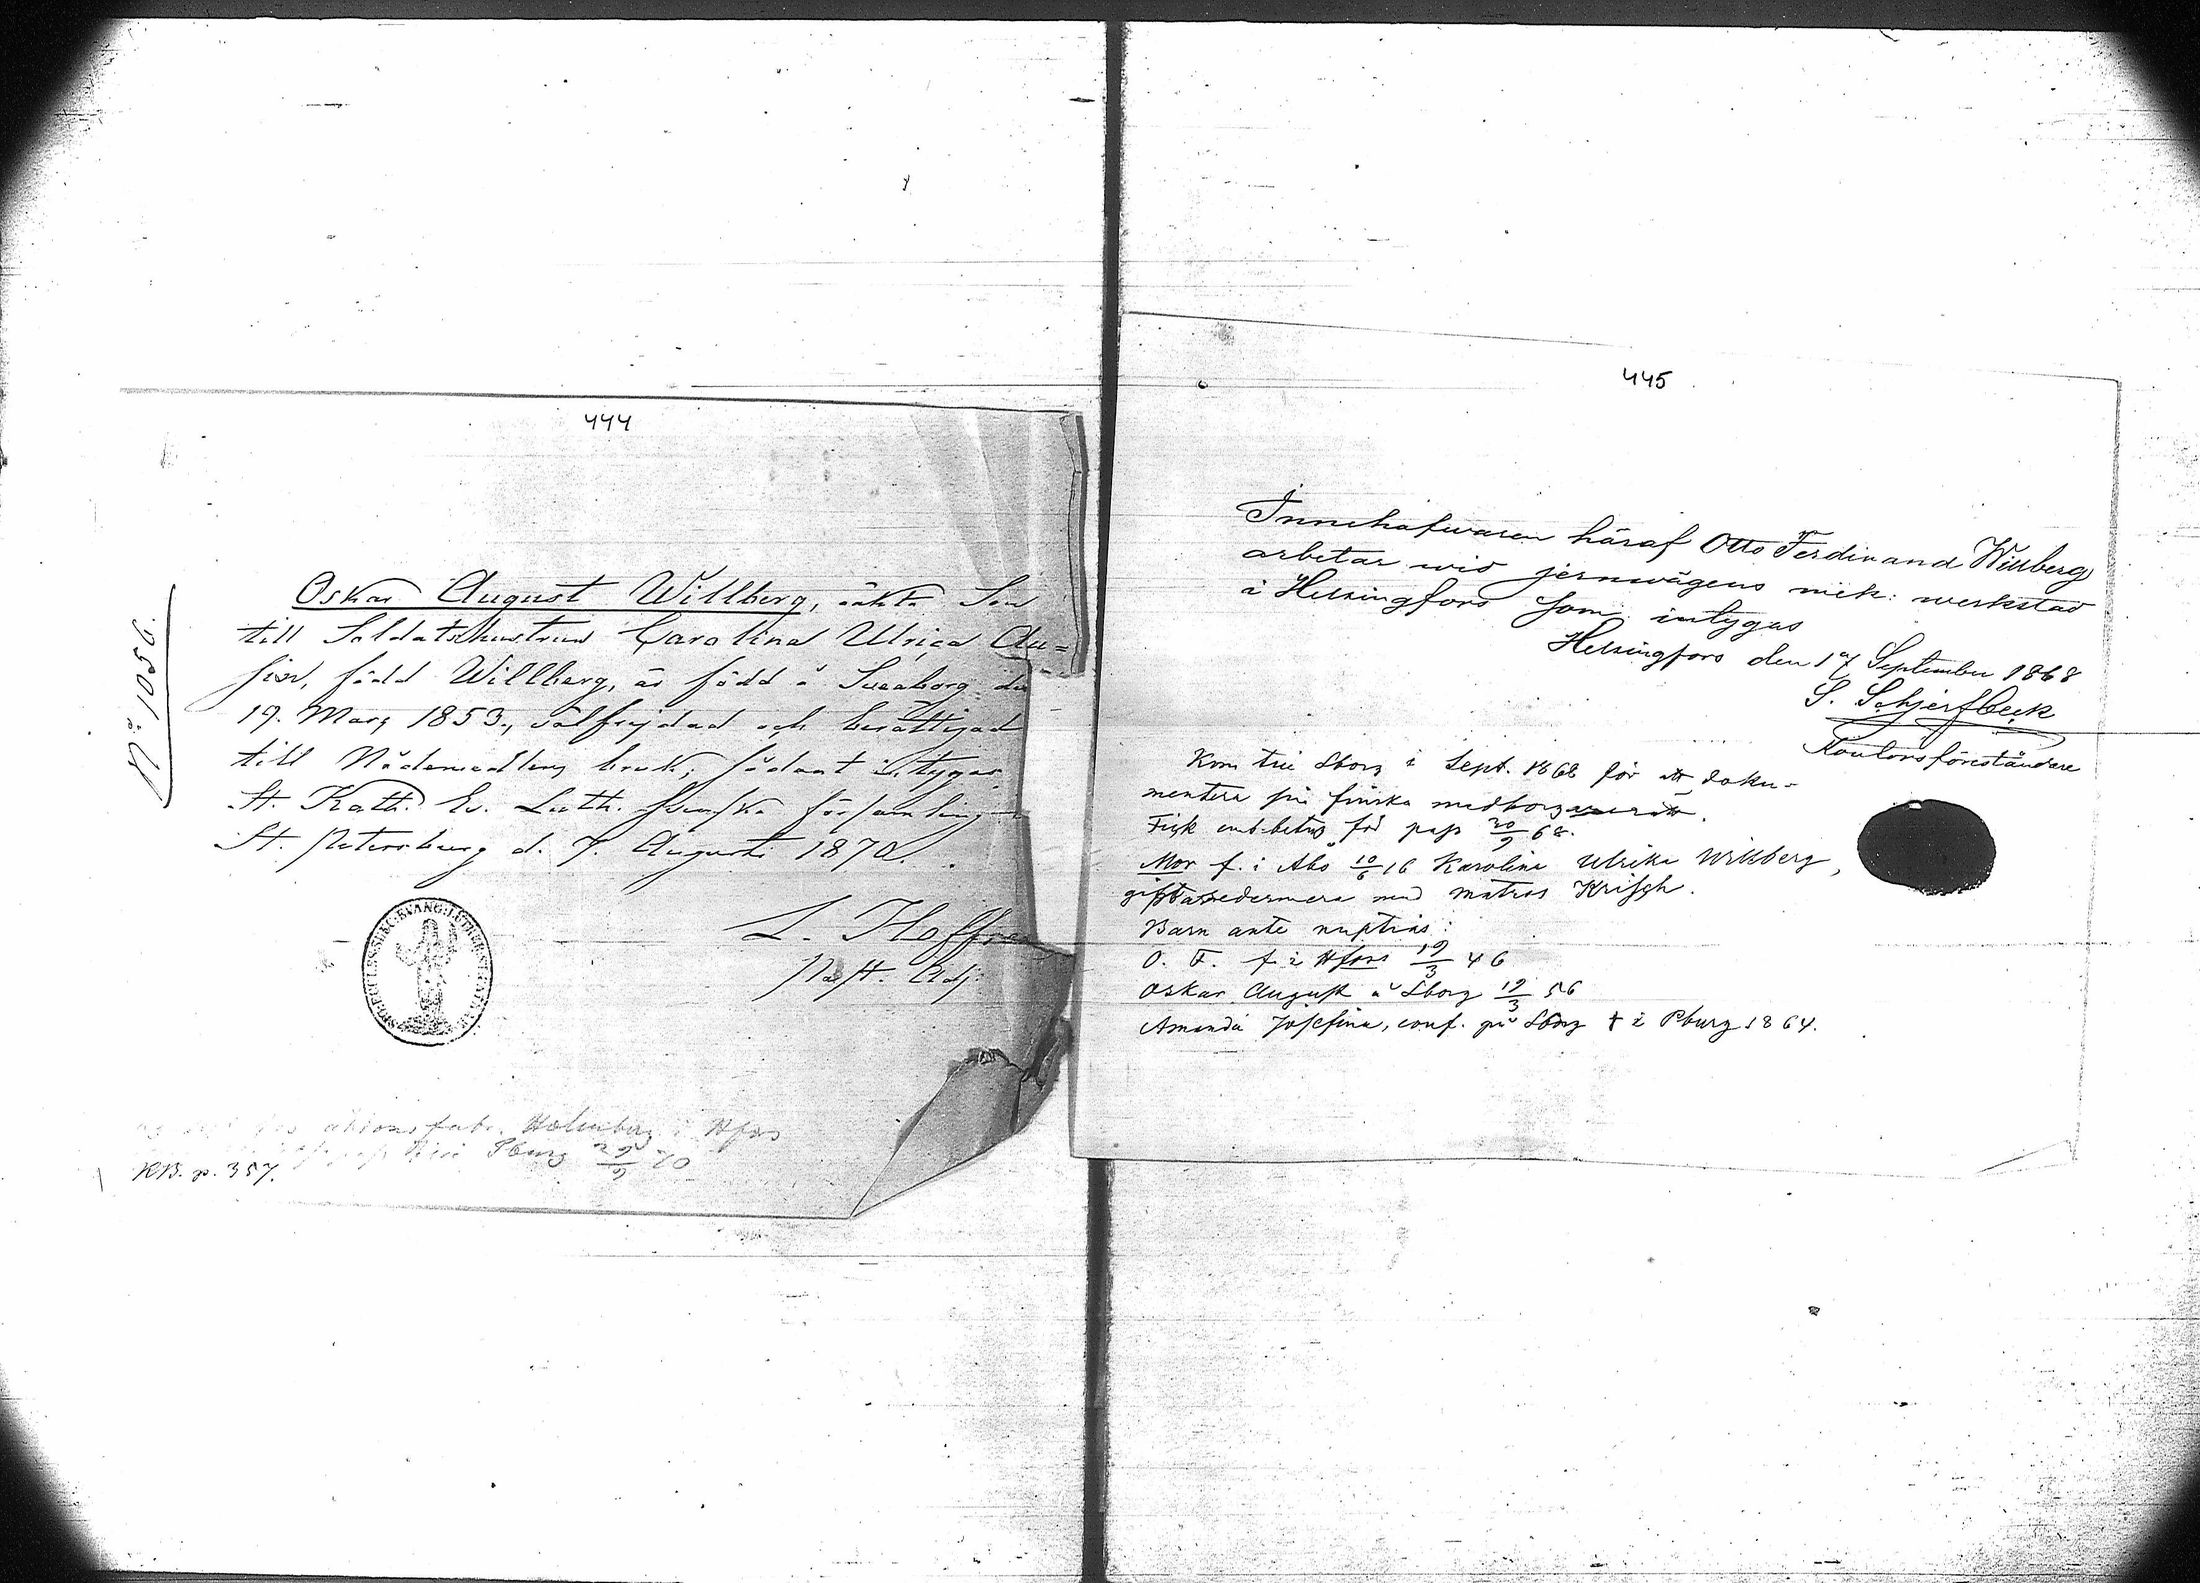 444
Nº 1056.
Oskar August Willberg, äkta Son
till Soldatshustrun Carolina Ulrica Au=
född Willberg, är född å Sveaborg den
19. Mars 1853., välfrejdad och berättigad
till Nådemedlens bruk; sådant intygas
St. Kath. Ev. Luth. Svenska församling
St. Petersburg d. 7. Augusti 1870.
L. Hoffren
Past. Adj.
Holmberg i Hfors
Pburg 29/9 70
KB. p. 357.
445
Innehafwaren häraf Otto Ferdinand Willberg
arbetar wid jernwägens mek: werkstad
i Helsingfors som intygas
Helsingfors den 17 September 1868
S. Schjerfbeck
Kontorsföreståndare
Kom till Sborg i Sept. 1868 för att doku-
mentera sin finska medborgarrätt.
Fick för pass 30/9 68.
Mor f. i Åbo 10/6 16 Karolina Ulrika Willberg,
gift sedermera med matros Krisch.
Barn ante nuptias:
O. F. f. i Hfors 19/3 46
Oskar August å Sborg 19/3 56
Amanda Josefina, conf. på Sborg † i Pburg 1864.